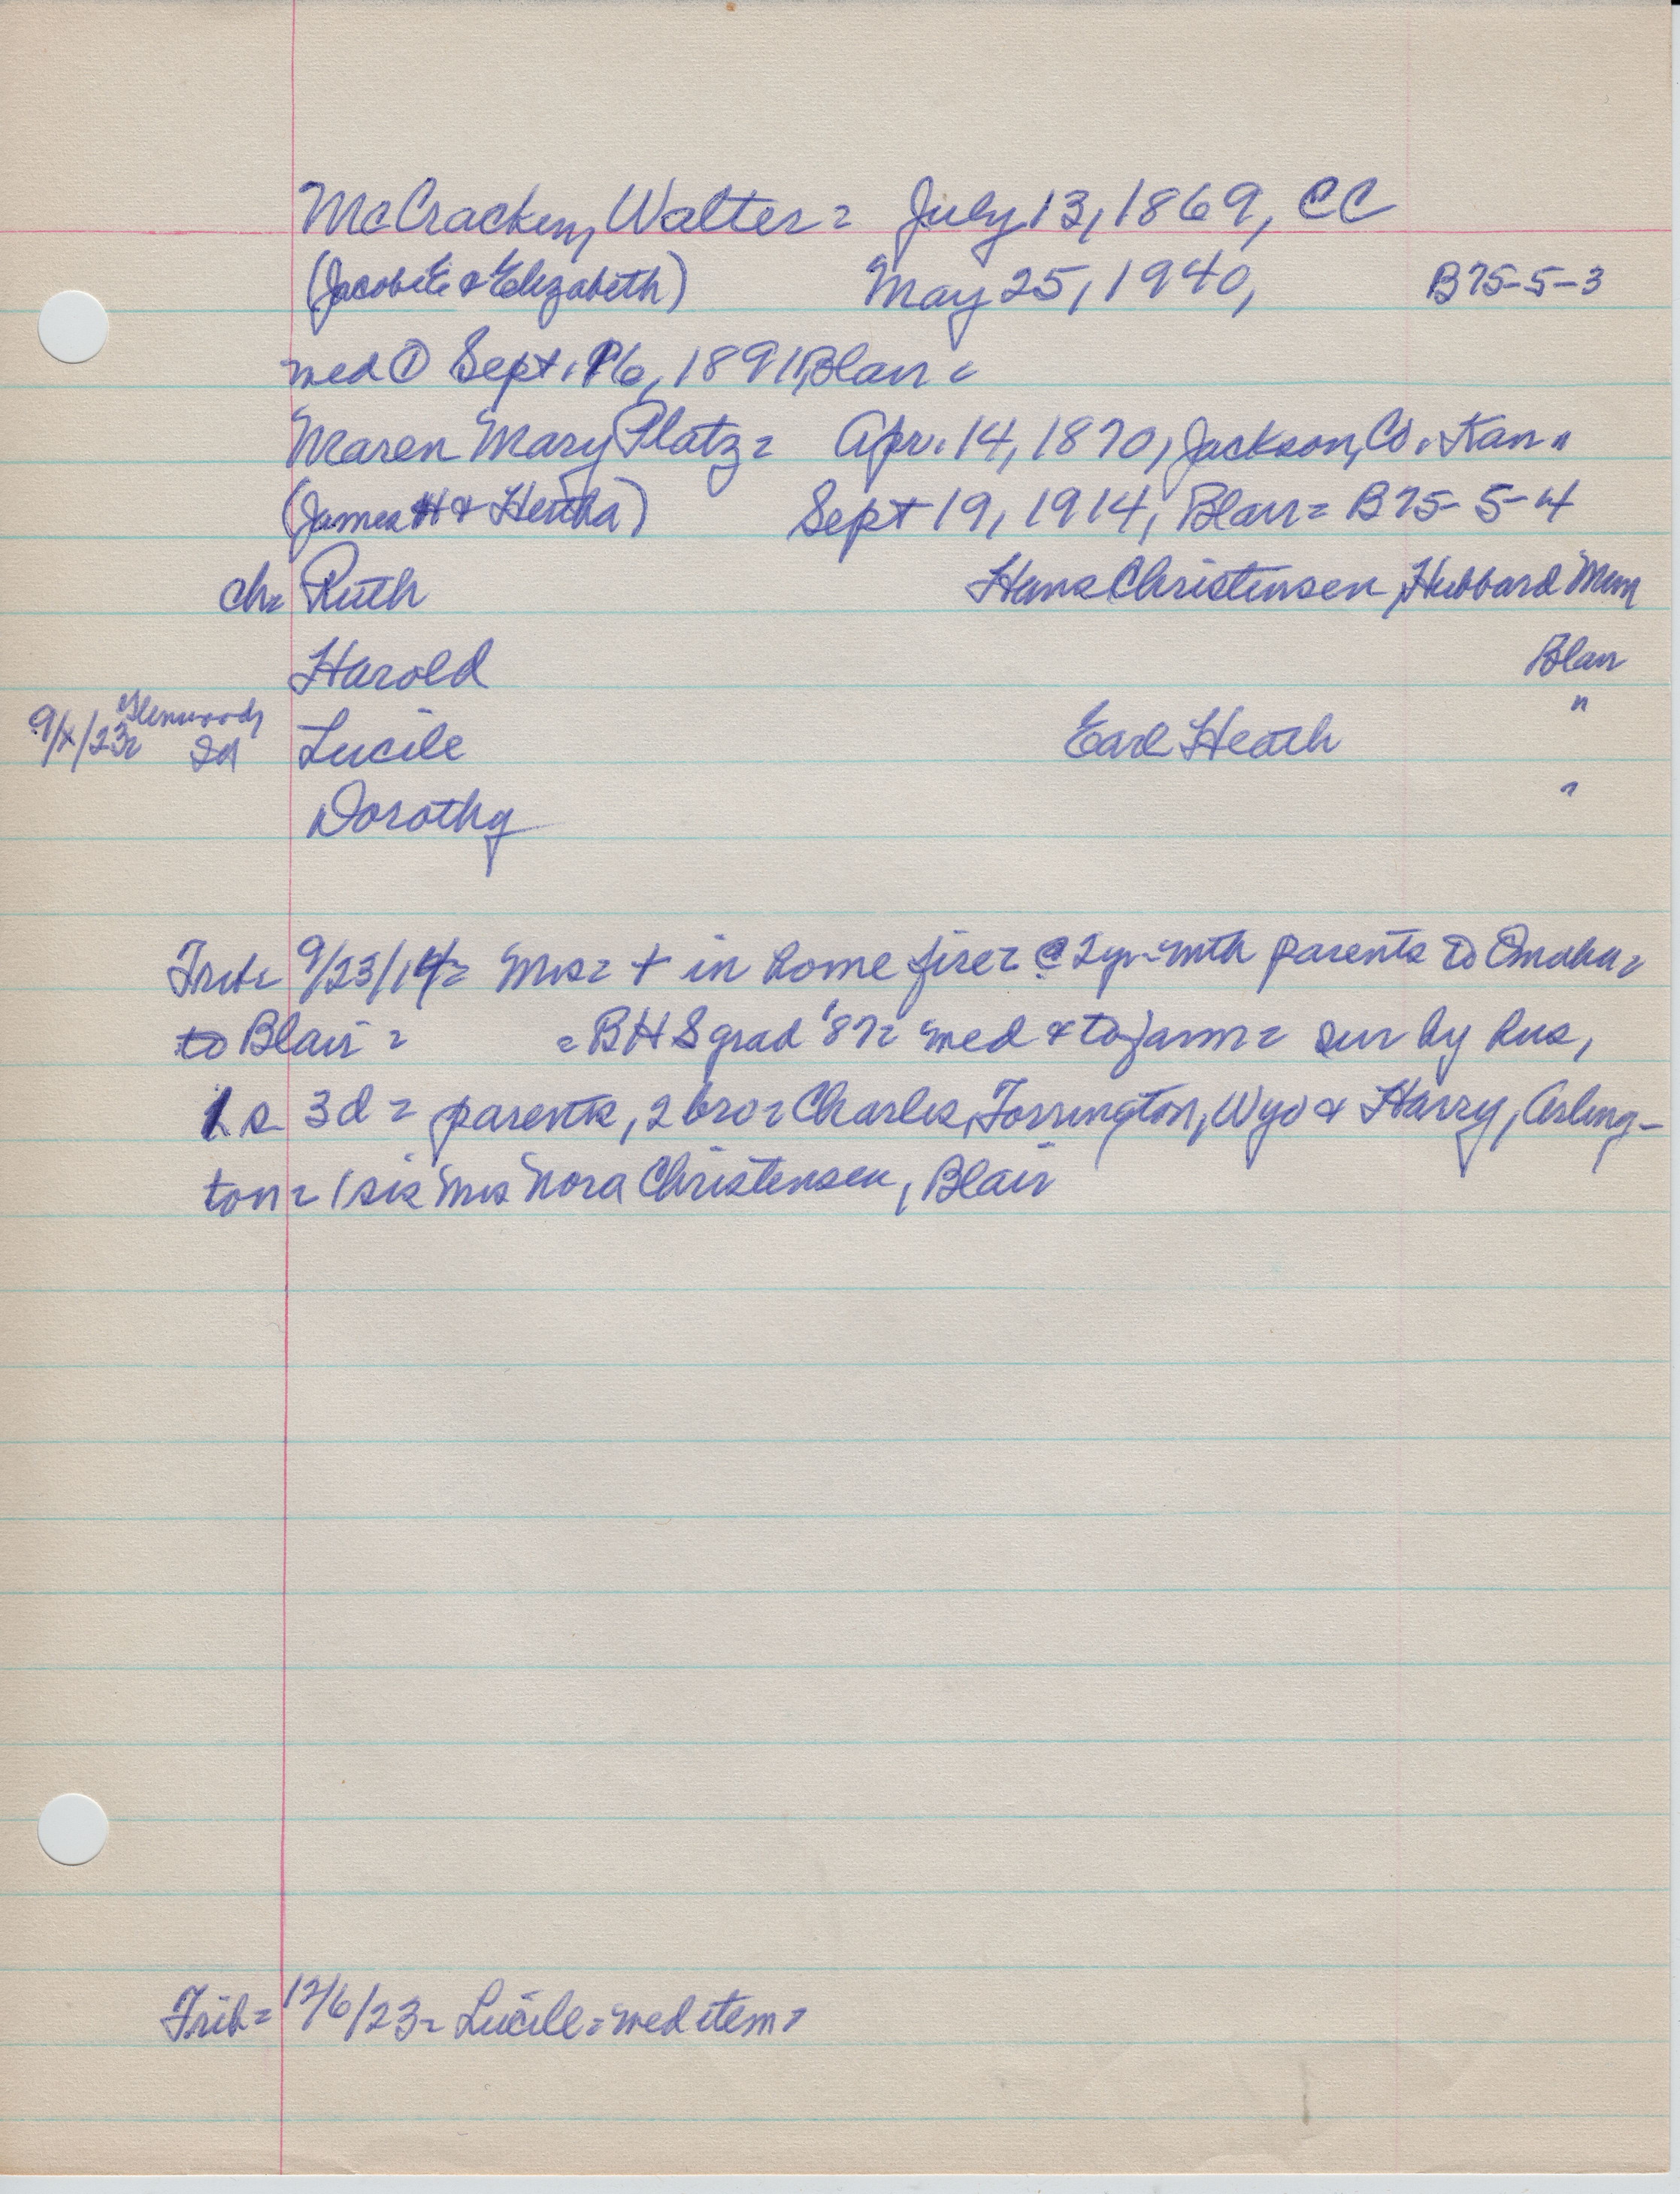 McCracken, Walter = July 13, 1869, CC
(Jacob E & Elizabeth) May 25, 1940, B75-5-3
med ① Sept. 16, 1891, Blair =
Maren Mary Platz = Apr. 14, 1870, Jackson, Co. Kan.
(James H & Hertha) Sept 19, 1914, Blair = B75-5-4
ch = Ruth Hans Christensen, Hubbard Minn
Harold Blair
9/x/23 = Glenwood, Ia Lucile Earl Heath "
Dorothy "
Trib = 9/23/14 = Mrs = + in home fire = @ 2 yr - with parents to Omaha =
to Blair = = BHS grad '87 = med & to farm = sur by hus,
1 s 3 d = parents, 2 bro = Charles, Torrington, Wyo & Harry, Arling-
ton = 1 sis Mrs Nora Christensen, Blair
Trib = 12/6/23 = Lucile = med item =